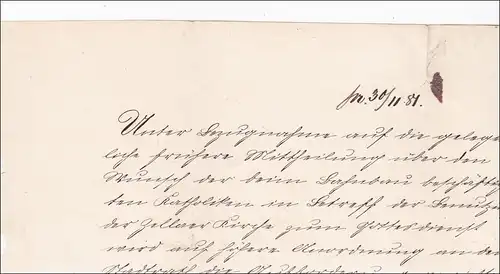 pr. 30/11. 81.
Unter Bezugnahme auf die gelegent-
liche frühere Mittheilung über den
Wunsch der beim Bahnbau beschäftig-
ten Katholiken in Betreff der Benutzung
der Zellaer Kirche zum Gottesdienst
wird auf höhere Anordnung an den
Stadtrath die